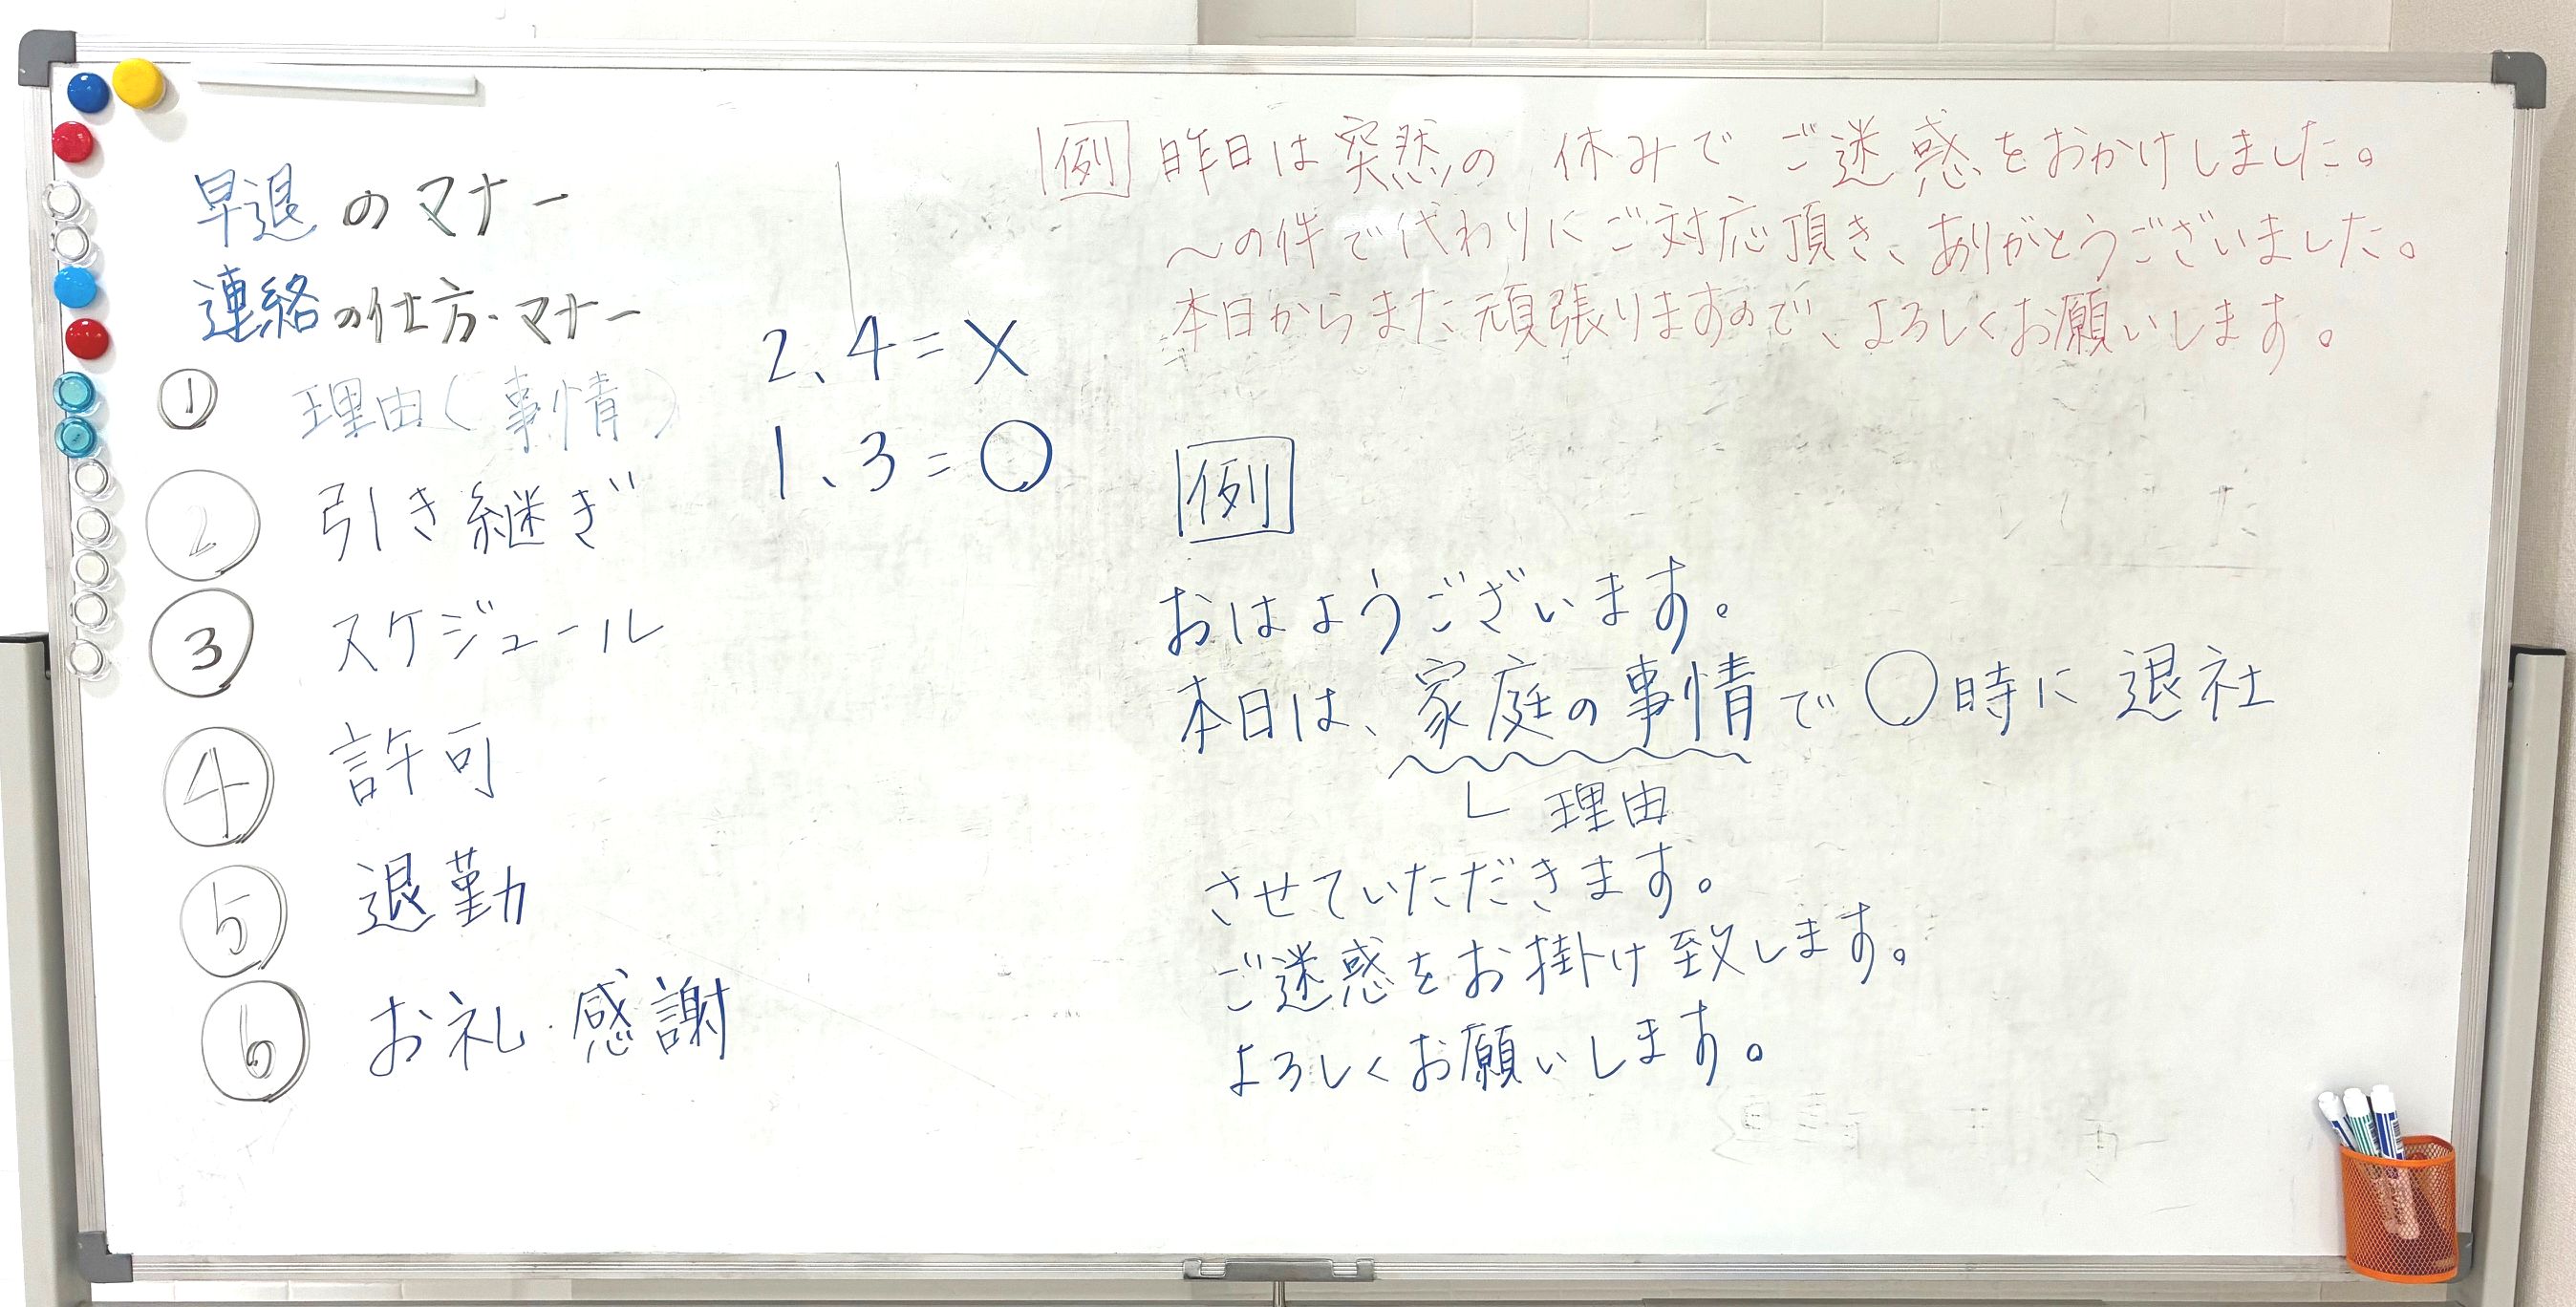 早退のマナー
連絡の仕方・マナー
① 理由(事情)
② 引き継ぎ
③ スケジュール
④ 許可
⑤ 退勤
⑥ お礼・感謝
2、4=×
1、3=○
例 昨日は突然の休みでご迷惑をおかけしました。
～の件で代わりにご対応頂き、ありがとうございました。
本日からまた頑張りますので、よろしくお願いします。
例
おはようございます。
本日は、家庭の事情で○時に退社
理由
させていただきます。
ご迷惑をお掛け致します。
よろしくお願いします。